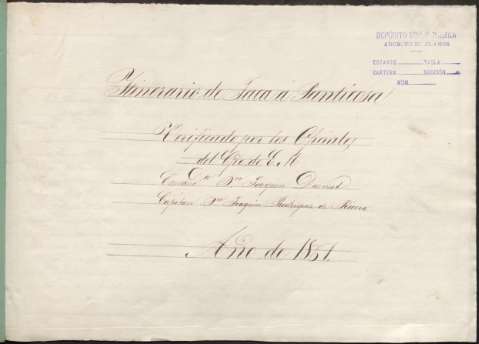 DEPÓSITO DE LA GUERRA
ARCHIVO DE PLANOS
ESTANTE TABLA
CARTERA SECCIÓN
NÚM.
Itinerario de Jaca á Panticosa
Verificado por los Oficiales
del Cpo. de E. M.
Comand.te Dn. Joaquin
Capitan Dn. Joaquin Rodriguez de Rivera
Año de 1851.